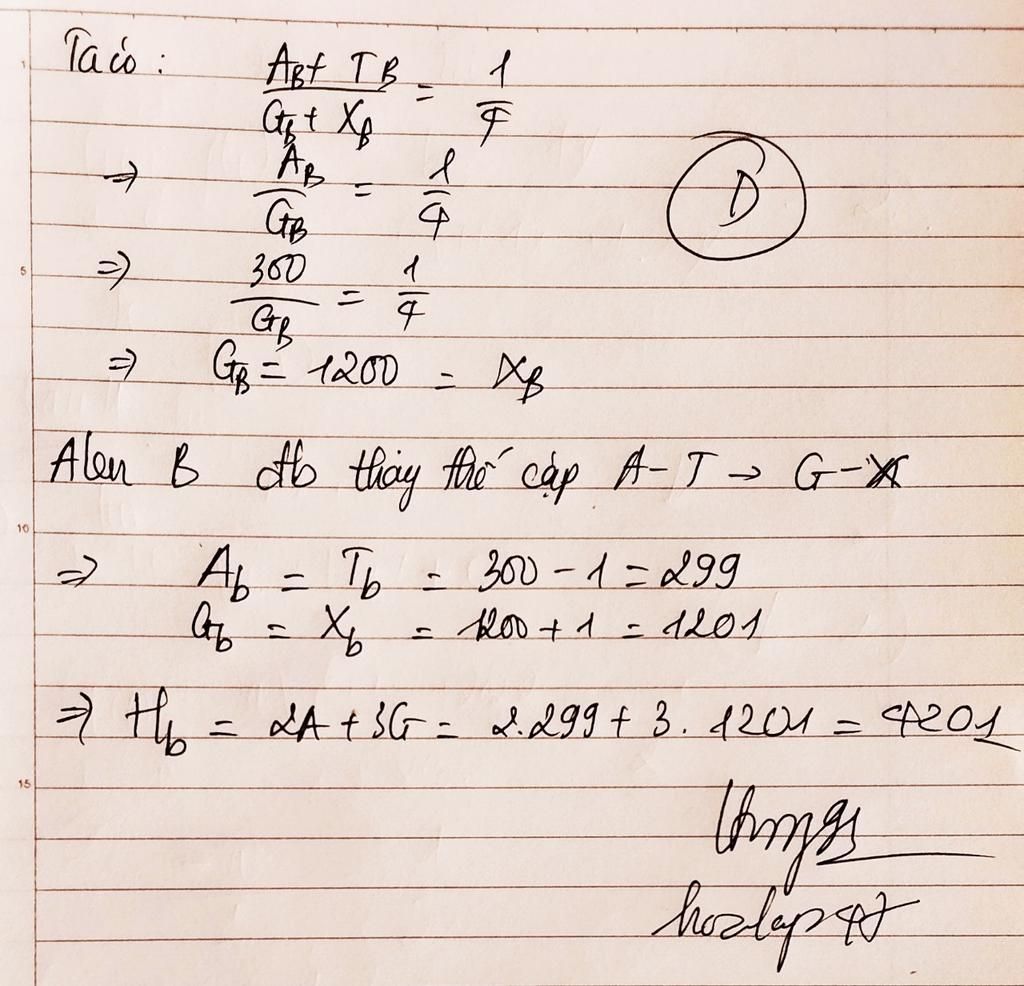 Ta có :
A_B + T_B / G_B + X_B = 1/4
⇒ A_B / G_B = 1/4
D
⇒ 300 / G_B = 1/4
⇒ G_B = 1200 = X_B
Alen B đb thay thế cặp A-T → G-X
⇒ A_b = T_b = 300 - 1 = 299
G_b = X_b = 1200 + 1 = 1201
⇒ H_b = 2A + 3G = 2.299 + 3. 1201 = 4201
1
5
10
15